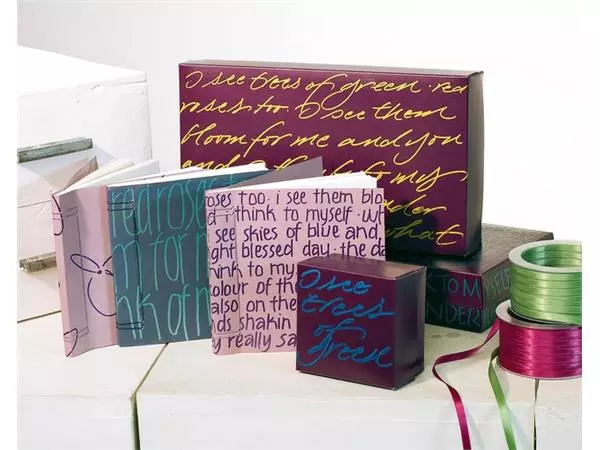 O see trees of green. red
roses too. O see them
bloom for me and you
to my
what
red rosa
m for
nk of m
roses too. i see them blo
d i think to myself. w
see skies of blue and
ght blessed day. the da
hink to my
colour of the
also on the
nds shakin
y really sa
O see
trees
of
green
K TO MYSELF
NDER